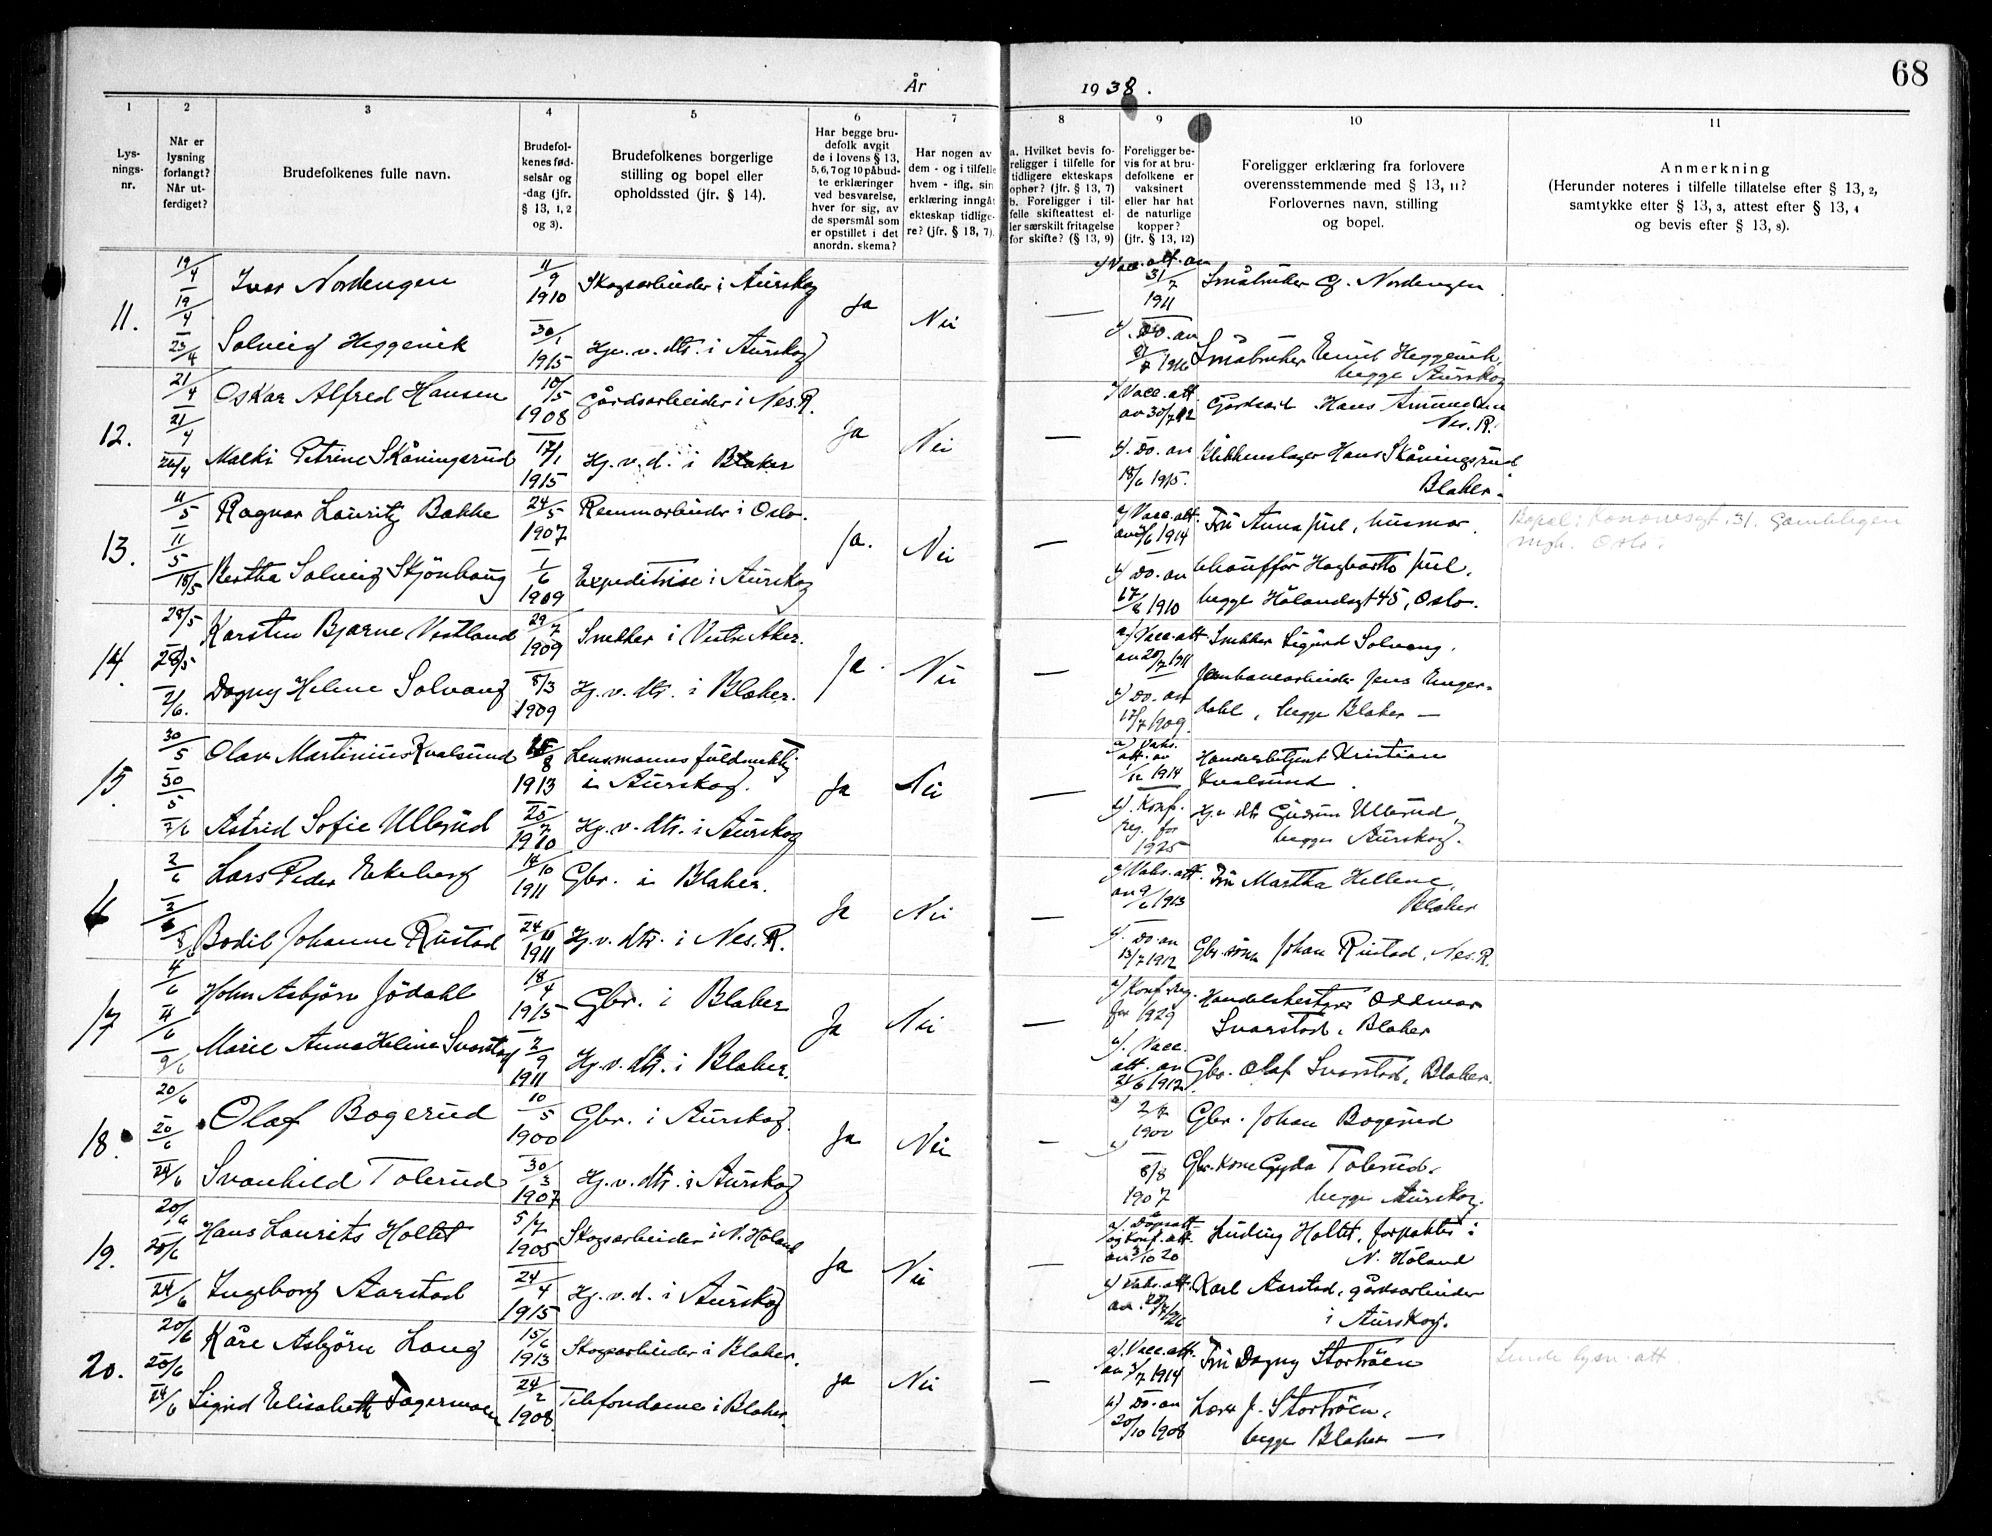 68
År 1938.
1 2 3 4 5 6 7 8 9 10 11
Lysningsnr.
Når er lysning forlangt? Når utferdiget?
Brudefolkenes fulle navn.
Brudefolkenes fødselsår og -dag (jfr. § 13, 1, 2 og 3).
Brudefolkenes borgerlige stilling og bopel eller opholdssted (jfr. § 14).
Har begge brudefolk avgit de i lovens § 13, 5, 6, 7 og 10 påbudte erklæringer ved besvarelse, hver for sig, av de spørsmål som er opstillet i det anordn. skema?
Har nogen av dem - og i tilfelle hvem - iflg. sin erklæring inngåt ekteskap tidligere? (jfr. § 13, 7).
a. Hvilket bevis foreligger i tilfelle for tidligere ekteskaps ophør? (jfr. § 13, 7)
b. Foreligger i tilfelle skifteattest eller særskilt fritagelse for skifte? (§ 13, 9)
Foreligger bevis for at brudefolkene er vaksinert eller har hat de naturlige kopper? (jfr. § 13, 12)
Foreligger erklæring fra forlovere overensstemmende med § 13, 11? Forlovernes navn, stilling og bopel.
Anmerkning
(Herunder noteres i tilfelle tillatelse efter § 13, 2, samtykke efter § 13, 3, attest efter § 13, 4 og bevis efter § 13, 8).
11. 19/4 Ivar Nordengen 11/9 1910 Skogsarbeider i Aurskog Ja Nei — Vacc. att. av 31/7 1911 Småbruker G. Nordengen
19/4 23/4 Solveig Heggevik 30/1 1915 Hj. v. dtr. i Aurskog Do. av 1916 Småbruker Emil Heggevik
begge Aurskog
12. 21/4 Oskar Alfred Hansen 10/5 1908 Gårdsarbeider i Nes. R. Ja Nei — Vacc. att. av 30/7 12 Gårdsarb. Hans Amundsen
Nes. R.
21/4 26/4 Malki Petrine Skåningsrud 17/1 1915 Hj. v. d. i Blaker Do. av 18/6 1915. Blikkenslager Hans Skåningsrud
Blaker.
13. 11/5 Ragnar Lauritz Bakke 24/5 1907 Remmarbeider i Oslo. Ja. Nei — Vacc. att. 1914 Fru Anna Juul, husmor. Bopel: Kanonesgt. 31. Gamlebyen
mgh. Oslo.
11/5 18/5 Bertha Solveig Skjönhaug 1/6 1909 Expeditrise i Aurskog Do. av 17/6 1910 Chauffør Hagbarth Juul,
begge Hålandsgt 45, Oslo.
14. 28/5 Karsten Bjarne Vestland 29/7 1909 Snekker i Vestre Aker. Ja. Nei — a) Vacc. att. av 20/7 1911 Snekker Sigurd Solvang,
28/5 2/6. Dagny Helene Solvang 8/3 1909 Hj. v. dtr. i Blaker. Do. av 17/7 1909. Jernbanearbeider Jens Unger-
dahl, begge Blaker —
15. 30/5 Olav Martinius Kvalsund 8 1913 Lensmannsfuldmektig
i Aurskog. Ja Nei — a) Vaks. att. av 1/12 1914 Handelsbetjent Kristian
Kvalsund.
30/5 7/6 Astrid Sofie Ullerud 25/7 1910 Hj. v. dtr. i Aurskog Konf. reg. for 1925 Hj. v. dtr Gudrun Ullerud,
begge Aurskog.
16 2/6 Lars Peder Ekeberg 14/10 1911 Gbr. i Blaker. Ja Nei — Vaks. att. av 9/6 1913 Fru Martha Hellene,
Blaker
8/6 Bodil Johanne Rustad 24/11 1911 Hj. v. dtr. i Nes. R. Do. av 13/7 1912 Gbr. sönn Johan Rustad, Nes. R.
17 4/6 John Asbjörn Jödahl 18/4 1915 Gbr. i Blaker Ja Nei — Konf. reg. for 1929 Handelsbestyrer Oddmar
Svarstad, Blaker
9/6 Marie Anna Heline Svarstad 2/9 1911 Hj. v. dtr. i Blaker. Vacc. att. av 21/6 1912 Gbr. Olaf Svarstad, Blaker.
18. 20/6 Olaf Bogerud 10/5 1900 Gbr. i Aurskog. Ja Nei — 1900 Gbr. Johan Bogerud
20/6 24/6 Svanhild Tolerud 30/3 1907 Hj. v. dtr. i Aurskog 8/8 1907 Gbr. Kone Gyda Tolerud,
begge Aurskog.
19. 20/6 Hans Laurits Holtet 5/7 1905 Skogsarbeider i N. Höland Ja Nei — a). Dåpsatt. og konf. att. av 3/10 20 Ludvig Holtet, forpakter i
N. Höland
20/6 24/6 Ingeborg Aarstad 24/4 1915 Hj. v. d. i Aurskog Vaks. att. av Karl Aarstad, gårdsarbeider
i Aurskog.
20. 20/6 Kåre Asbjörn Lang 15/6 1913 Skogsarbeider i Blaker. Ja Nei — a). Vacc. att. 1914 Fru Dagny Stortröen Sendt lysn. att.
20/6 24/6 Sigrid Elisabeth Fagermoen 24/2 1908. Telefondame i Blaker. Do. av 20/10 1908 Lærer J. Stortröen,
begge Blaker —